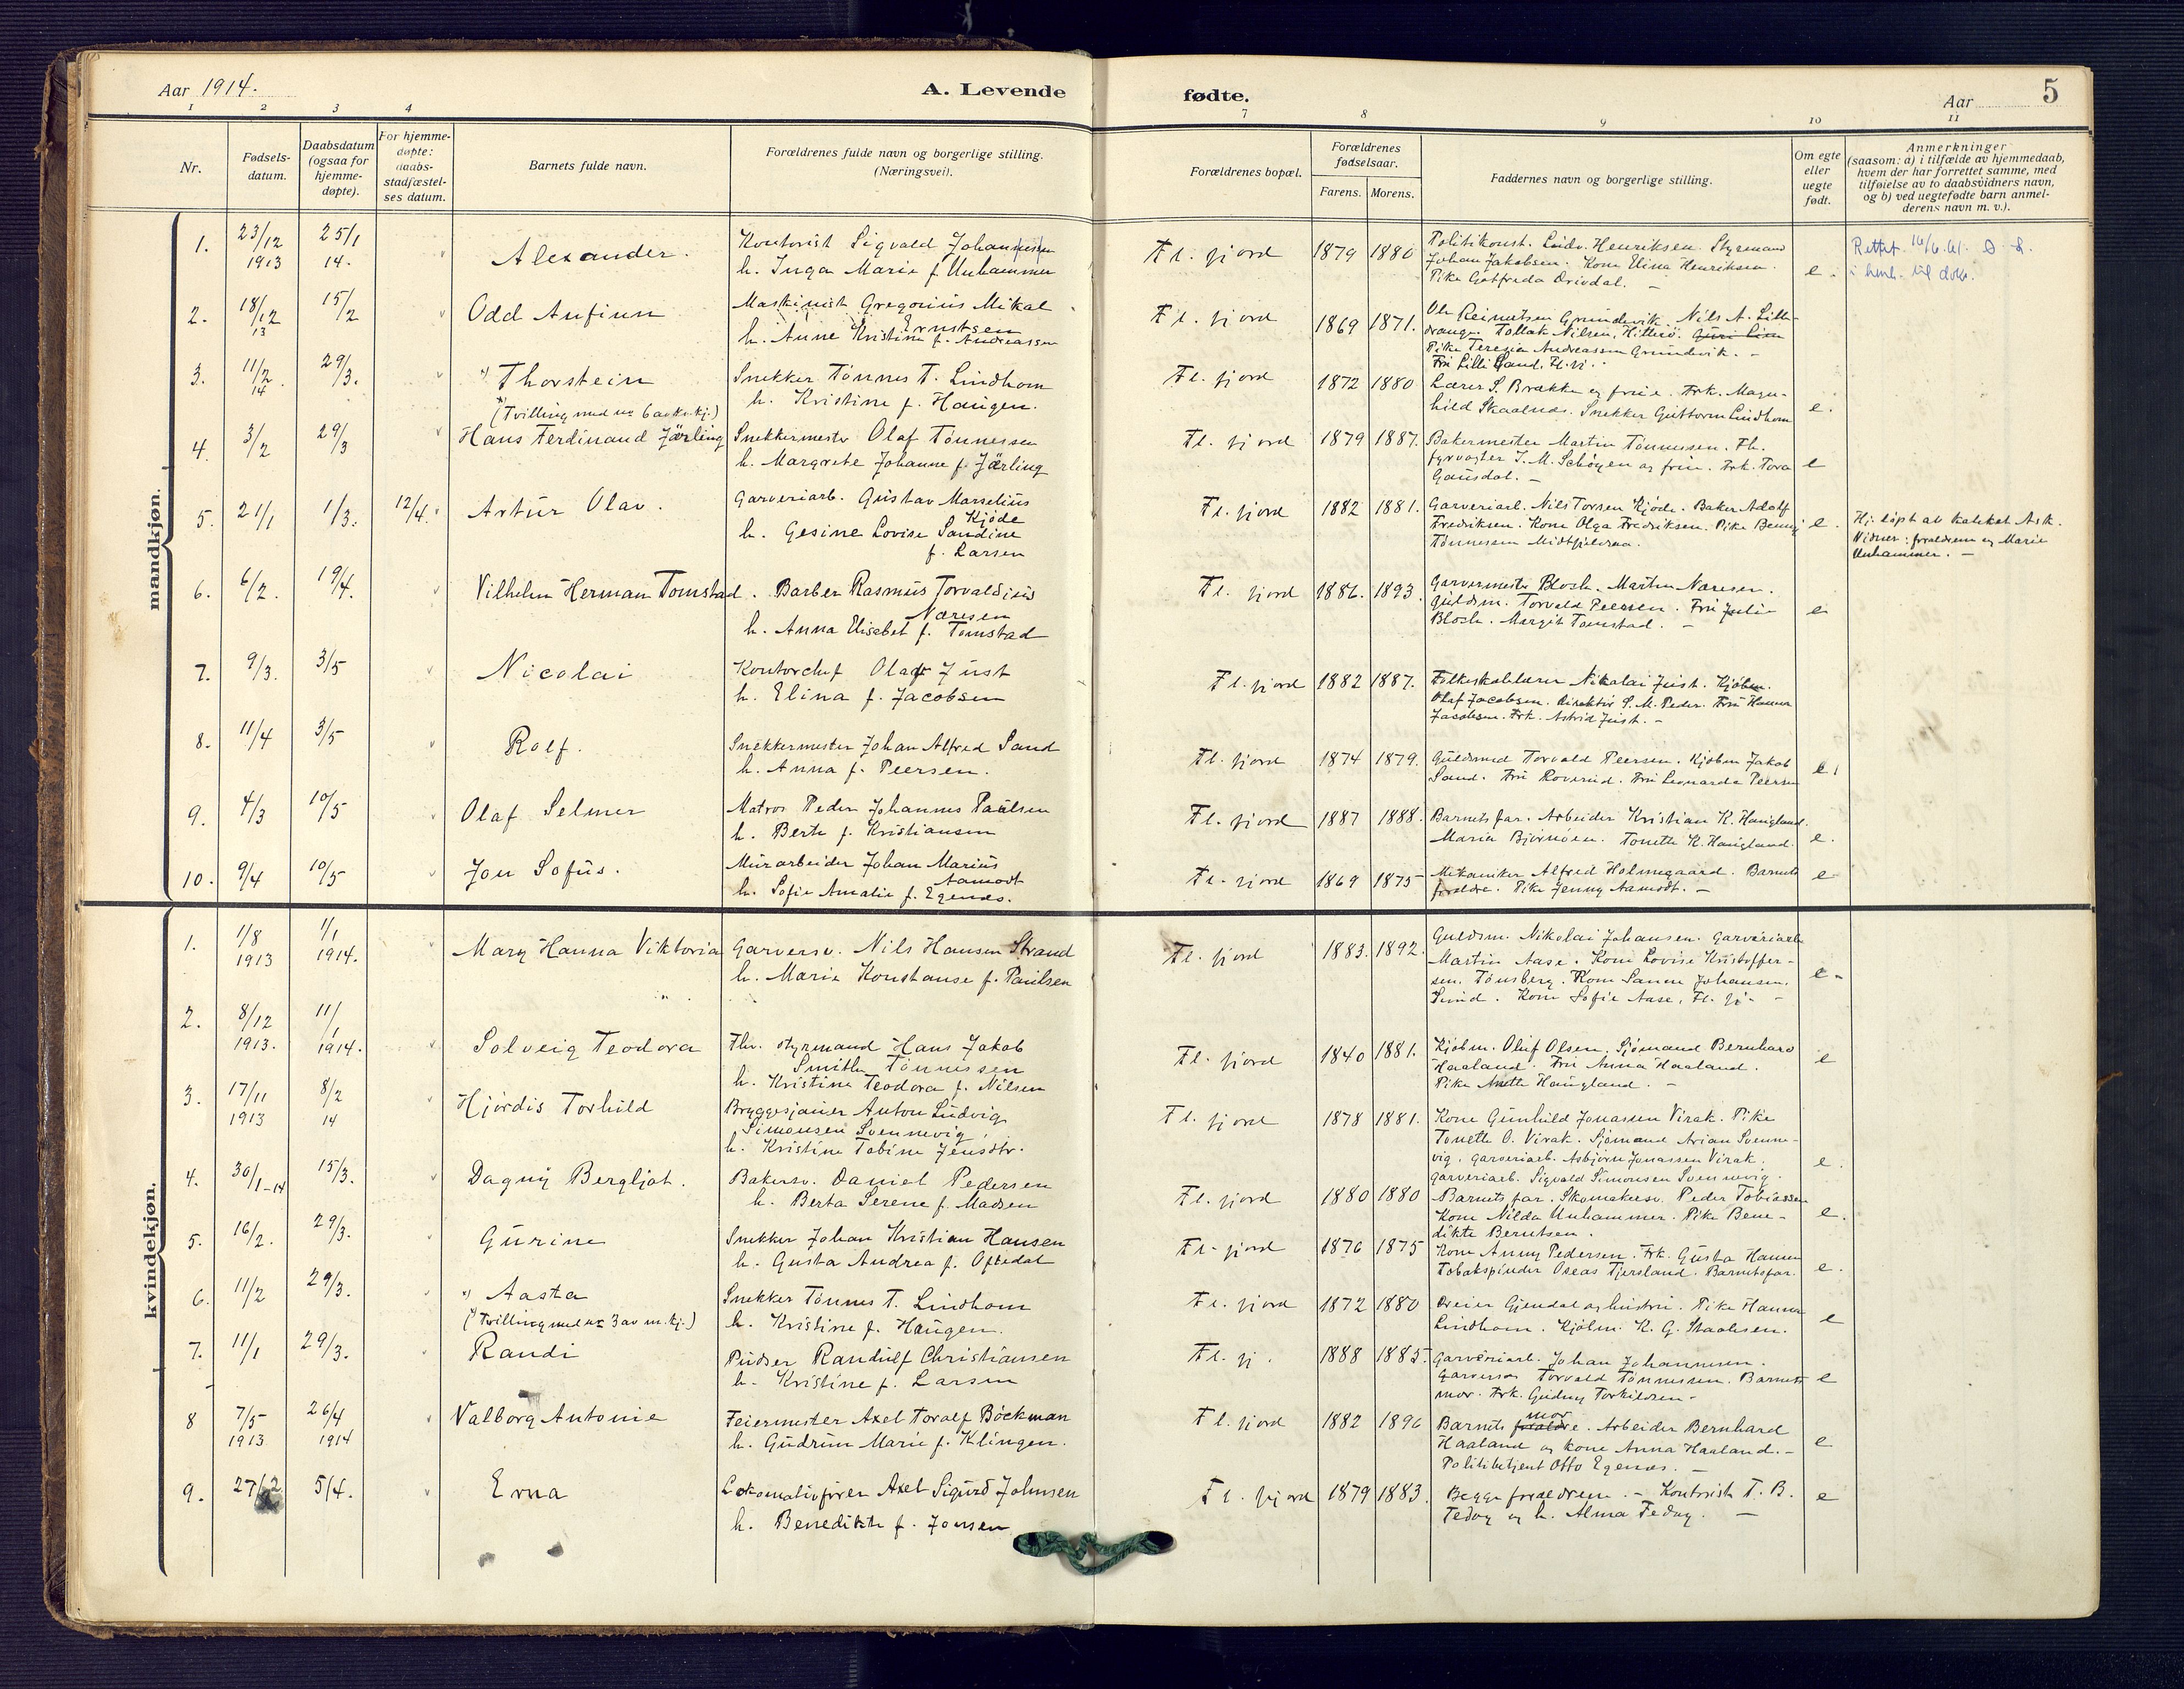 Aar 1914.
A. Levende fødte.
Aar
5
1 2 3 4 7 8 9 10 11
Nr.
Fødsels-datum.
Daabsdatum (ogsaa for hjemme-døpte).
For hjemme-døpte: daabs-stadfæstel-ses datum.
Barnets fulde navn.
Forældrenes fulde navn og borgerlige stilling. (Næringsvei).
Forældrenes bopæl.
Forældrenes fødselsaar.
Farens. Morens.
Faddernes navn og borgerlige stilling.
Om egte eller uegte født.
Anmerkninger (saasom: a) i tilfælde av hjemmedaab, hvem der har forrettet samme, med tilføielse av to daabsvidners navn, og b) ved uegtefødte barn anmel-derens navn m. v.).
mandkjøn.
1. 23/12 1913 25/1 14. Alexander.
Kontorist Sigvald Johannessen
h. Inga Marie f Unhammer
Fl. fjord 1879 1880
Politikonst. Ludv. Henriksen. Styrmand
Johan Jakobsen. Kone Elina Henriksen.
Pike Gotfreda Drivdal. –
e.
Rettet 16/6.61.
2. 18/12 13 15/2 Odd Anfinn
Maskinist Gregorius Mikal
Ernstsen
h. Anne Kristine f. Andreassen
Fl. fjord 1869 1871.
Ole Reinertsen Grundevik. Nils A. Lille-
drange. Tollak Nilsen, Hitterö.
Pike Teresie Andreassen Grundevik. –
Fru Lilli Sand, Fl. fj.
3. 11/2 14 29/3. *) Thorstein
*) (Tvilling med nr 6 av kv.kj.)
Snekker Tönnes T. Lindhom
h. Kristine f. Haugen.
Fl. fjord 1872 1880
Lærer S. Brække og frue. Frk. Magn-
hild Skaalnes. Snekker Guttorm Lindhom
e.
4. 3/2 29/3 Hans Ferdinand Järling
Snekkermester Olaf Tönnessen
h. Margrete Johanne f. Järling
Fl. fjord 1879 1887.
Bakermester Martin Tönnessen. Fl.
fyrvogter J. M. Schöyen og frue. Frk. Tora
Gausdal. –
e
5. 21/1 1/3. 12/4. Artur Olav.
Garveriarb. Gustav Marselius
Kjöde
h. Gesine Lovise Sandine
f. Larsen
Fl. fjord 1882 1881.
Garveriarb. Nils Torsen Kjöde. Baker Adolf
Fredriksen. Kone Olga Fredriksen. Pike Benny
Tönnessen Midtfjeldsaa.
e.
Hj. döpt av kateket Ask.
Vidner: forældrene og Marie
Unhammer. –
6. 6/2. 19/4. Vilhelm Herman Tomstad.
Barber Rasmus Torvaldius
Næresen
h. Anna Elisabet f. Tomstad
Fl. fjord 1886. 1893.
Garvermester Bloch. Martin Næresen.
Guldsm. Torvald Peersen. Fru Julie
Bloch. Margit Tomstad. –
e
7. 9/3. 3/5 Nicolai
Kontorchef Olaf Just
h. Elina f. Jacobsen
Fl. fjord 1882 1887.
Folkeskolelærer Nikolai Just. Kjöbm.
Olaf Jacobsen. Direktör S. M. Peder. Fru Hanna
Jacobsen. Frk. Astrid Just. –
8. 11/4 3/5 Rolf.
Snekkermester Johan Alfred Sand
h. Anna f. Peersen.
Fl. fjord 1874 1879.
Guldsmed Torvald Peersen. Kjöbm Jakob
Sand. Fru Roverud. Fru Leonarda Peersen
e.
9. 4/3 10/5 Olaf Selmer
Matros Peder Johannes Paulsen
h. Berte f. Kristiansen
Fl. fjord 1887 1888.
Barnets far. Arbeider Kristian K. Haugland.
Maria Björnöen. Tonette K. Haugland.
e.
10. 9/4 10/5 Jon Sofus.
Murarbeider Johan Marius
Aamodt
h. Sofie Amalie f. Egenes.
Fl. fjord 1869 1875
Mekaniker Alfred Holmegaard. Barnets
forældre. Pike Jenny Aamodt. –
e
kvindekjøn.
1. 1/8 1913 1/1 1914. Mary Hanna Viktoria
Garversv. Nils Hansen Strand
h. Marie Konstanse f. Paulsen
Fl. fjord 1883. 1892.
Guldsm. Nikolai Johansen. Garveriarb
Martin Aase. Kone Lovise Kristoffer-
sen. Tönsberg. Kone Sanne Johansen.
Sund. Kone Sofie Aase, Fl. fj. –
e.
2. 8/12 1913. 11/1 1914. Solveig Teodora
Fhv. styrmand Hans Jakob
Smith Tönnessen
h. Kristine Teodora f. Nilsen
Fl. fjord 1840 1881.
Kjöbm. Oluf Olsen. Sjömand Bernhard
Haaland. Fru Anna Haaland.
Pike Anette Haugland. –
e
3. 17/11 1913 8/2 14 Hjördis Torhild
Bryggesjauer Anton Ludvig
Simonsen Svennevig
h. Kristine Tobine Jensdtr.
Fl. fjord 1878 1881.
Kone Gunhild Jonassen Virak. Pike
Tonette O. Virak. Sjömand Arian Svenne-
vig. Garveriarb. Asbjörn Jonassen Virak.
Garveriarb. Sigvald Simonsen Svennevig.
e.
4. 30/1-14 15/3. Dagny Bergljot.
Bakersv. Daniel Pedersen
h. Berta Serene f. Madsen
Fl. fjord 1880 1880
Barnets far. Skomakersv. Peder Tobiassen
Kone Nilda Unhammer. Pike Bene-
dikte Berntsen.
e.
5. 16/2. 29/3. Gurine
Snekker Johan Kristian Hansen
h. Gusta Andrea f. Oftedal
Fl. fjord 1876 1875
Kone Anny Pedersen. Frk. Gusta Hansen
Tobakspinder Oseas Tjersland. Barnets far.
e.
6. 11/2 29/3. *) Aasta
(*) Tvilling med nr 3 av m.kj.)
Snekker Tönnes T. Lindhom
h. Kristine f. Haugen.
Fl. fjord 1872 1880
Dreier Gjendal og hustru. Pike Hanna
Lindhom. Kjöbm. K. G. Staalesen.
e
7. 11/1 29/3. Randi
Pudser Randulf Christiansen
h. Kristine f. Larsen
Fl. fj. 1888 1885.
Garveriarb. Johan Johannesen.
Garversv Torvald Tönnessen. Barnets
mor. Frk. Gudny Torkildsen –
e
8 7/5 1913 26/4 1914 Valborg Antonie
Feiermester Axel Toralf Böckman
h. Gudrun Marie f. Klingen.
Fl. fjord 1882 1896
mor
Barnets forældre. Arbeider Bernhard
Haaland og kone Anna Haaland. –
Politibetjent Otto Egenes. –
e
9. 27/2 5/4. Erna
Lokomotivfører Axel Sigurd Johnsen
h. Benedikte f. Jonsen
Fl. fjord 1879 1883.
Begge forældrene. – Kontorist T. B.
Fedog og h. Alma Fedog. –
e